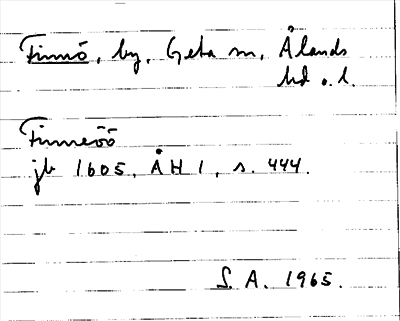 Finnö, by, Geta sn, Ålands
hd o. l.
Finneöö
jb 1605, ÅH 1, s. 444.
S. A. 1965.